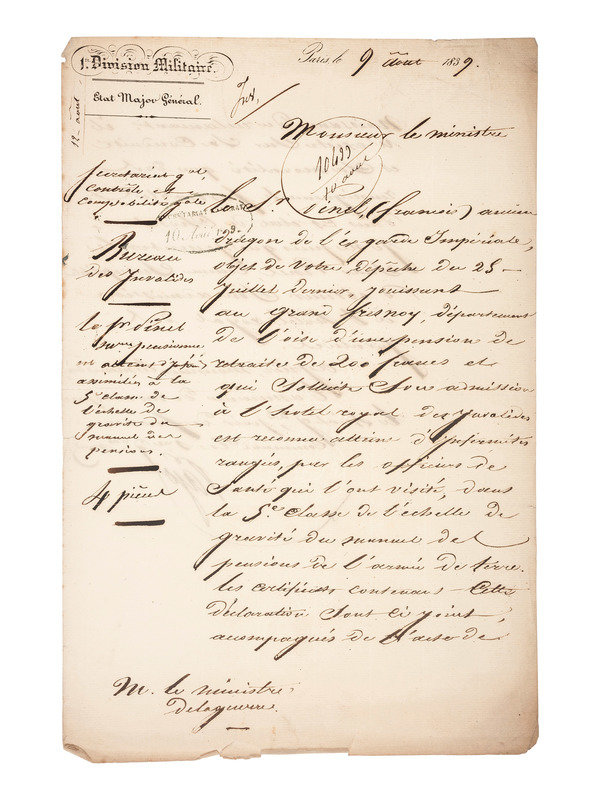 1re Division Militaire.
Etat Major Général.
12 août
Paris le 9 août 1839.
Monsieur le ministre
10433
10 août
Secrétariat gal
contrôle et
comptabilité gale
Bureau
des Invalides
le Sr Pinel
pensionné
est atteint d'infirmités
assimilées à la
5e classe de
l'échelle de
gravité du
manuel des
pensions.
4 pièces
le Sr Pinel, (francois) ancien
dragon de l'ex garde Impériale,
objet de votre dépêche du 25
juillet dernier, jouissant
au grand fresnoy, département
de l'oise d'une pension de
retraite de 200 francs et
qui Sollicite Son admission
à l'hotel royal des Invalides
est reconnu atteint d'infirmités
rangées, par les officiers de
Santé qui l'ont visité, dans
la 5e classe de l'échelle de
gravité du manuel des
pensions de l'armée de terre.
les certificats contenant Cette
déclaration Sont ci joint,
acompagnés de l'acte de
M. le ministre
delaguerre.